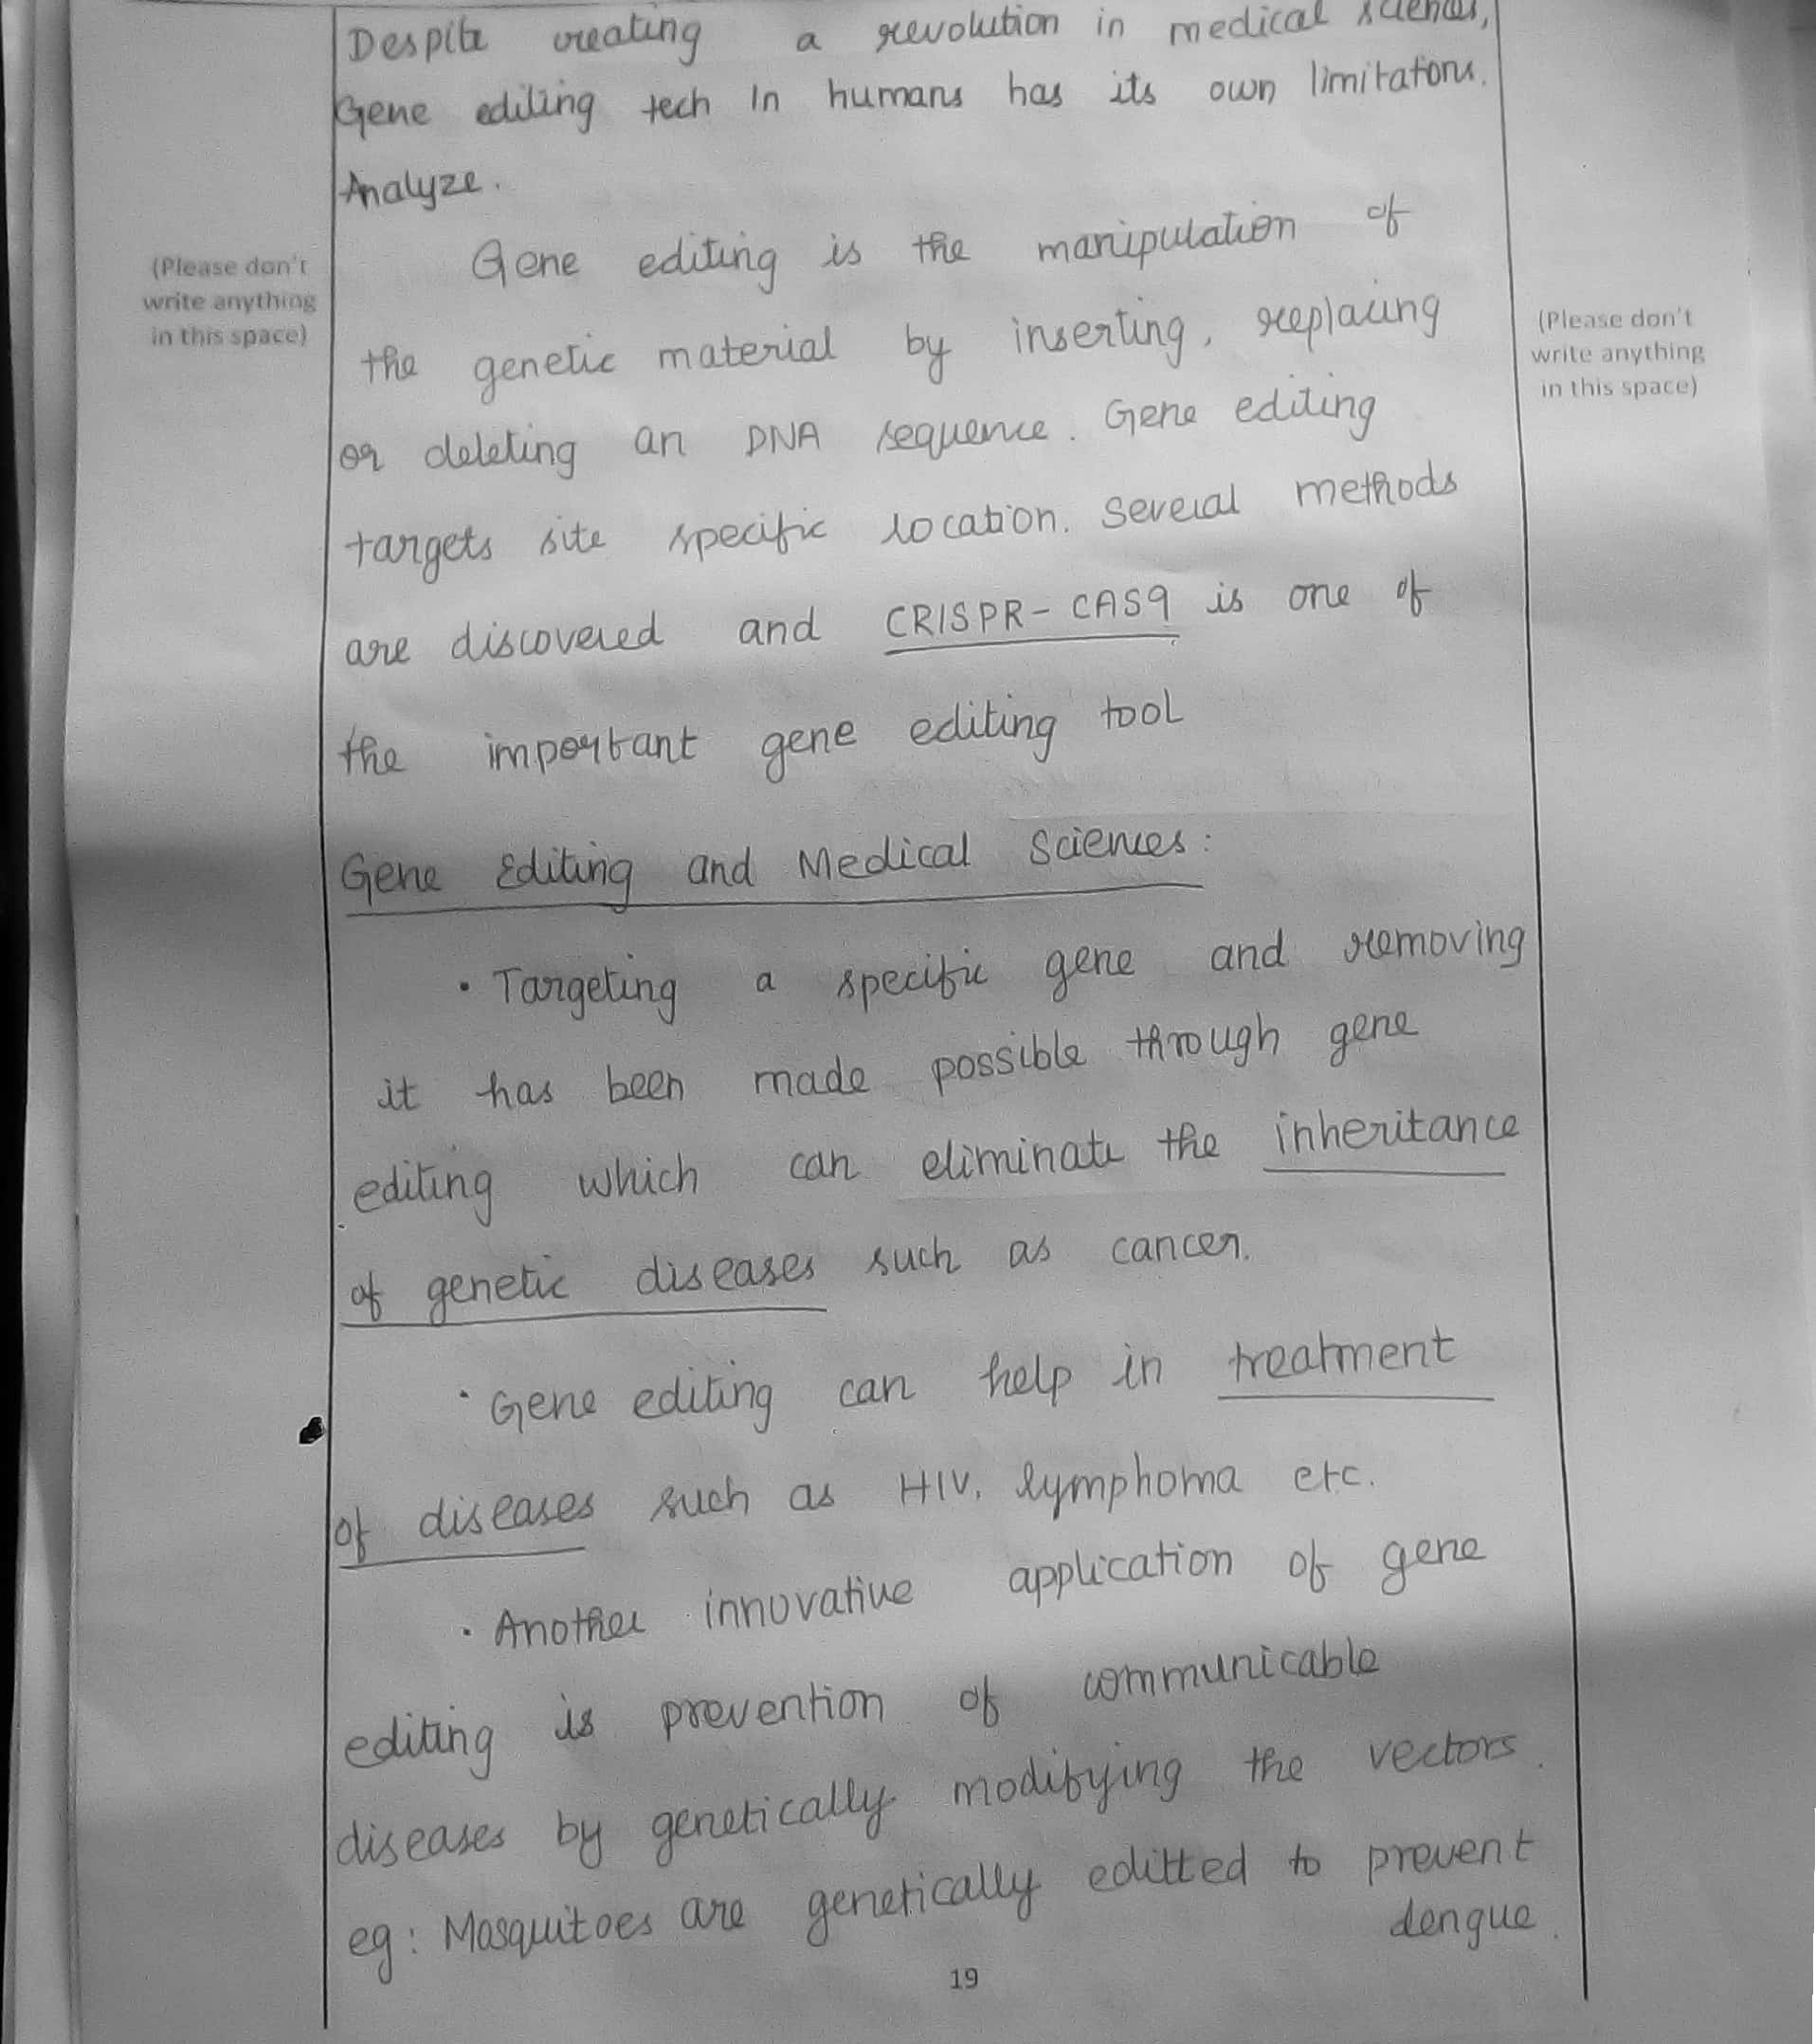 Despite creating a revolution in medical sciences,
Gene editing tech In humans has its own limitations.
Analyze.
Gene editing is the manipulation of
(Please don't
write anything
in this space)
the genetic material by inserting, replacing
(Please don't
write anything
in this space)
or deleting an DNA sequence. Gene editing
targets site specific location. Several methods
are discovered and CRISPR-CAS9 is one of
the important gene editing tool
Gene Editing and Medical Sciences:
• Targeting a specific gene and removing
it has been made possible through gene
editing which can eliminate the inheritance
of genetic diseases such as cancer.
• Gene editing can help in treatment
of diseases such as HIV, lymphoma etc.
• Another innovative application of gene
editing is prevention of communicable
diseases by genetically modifying the vectors.
eg: Mosquitoes are genetically editted to prevent
dengue.
19